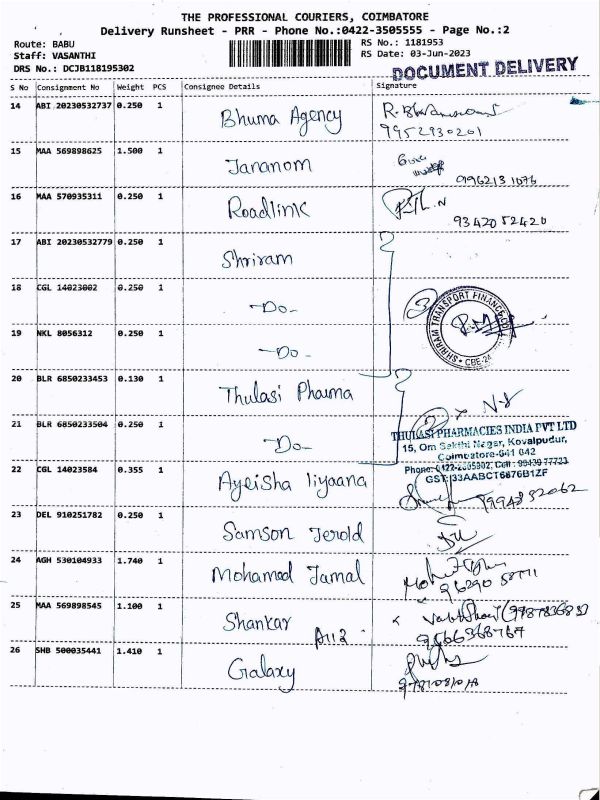 THE PROFESSIONAL COURIERS, COIMBATORE
Delivery Runsheet - PRR - Phone No.:0422-3505555 - Page No.:2
Route: BABU
RS No.: 1181953
Staff: VASANTHI
RS Date: 03-Jun-2023
DRS No.: DCJB118195302
DOCUMENT DELIVERY
S No Consignment No Weight PCS Consignee Details Signature
14 ABI 20230532737 0.250 1 Bhuma Agency
9952930201
15 MAA 569898625 1.500 1 Jananom
9962131076
16 MAA 570935311 0.250 1 Roadlink
9342052420
17 ABI 20230532779 0.250 1 Shriram
18 CGL 14023002 0.250 1 -Do-
3
SHRIRAM TRANSPORT FINANCE CO
CBE-24
19 NKL 8056312 0.250 1 -Do-
20 BLR 6850233453 0.130 1 Thulasi Pharma
2
21 BLR 6850233504 0.250 1 -Do-
THULASI PHARMACIES INDIA PVT LTD
15, Om Sakthi Nagar, Kovalpudur,
Coimbatore-641 042
GST: 33AABCT6676B1ZF
22 CGL 14023584 0.355 1 Ayeisha liyaana
9994832062
23 DEL 910251782 0.250 1 Samson Jerold
24 AGH 530104933 1.740 1 Mohamed Jamal
25 MAA 569898545 1.100 1 Shankar
9566368767
26 SHB 500035441 1.410 1 Galaxy